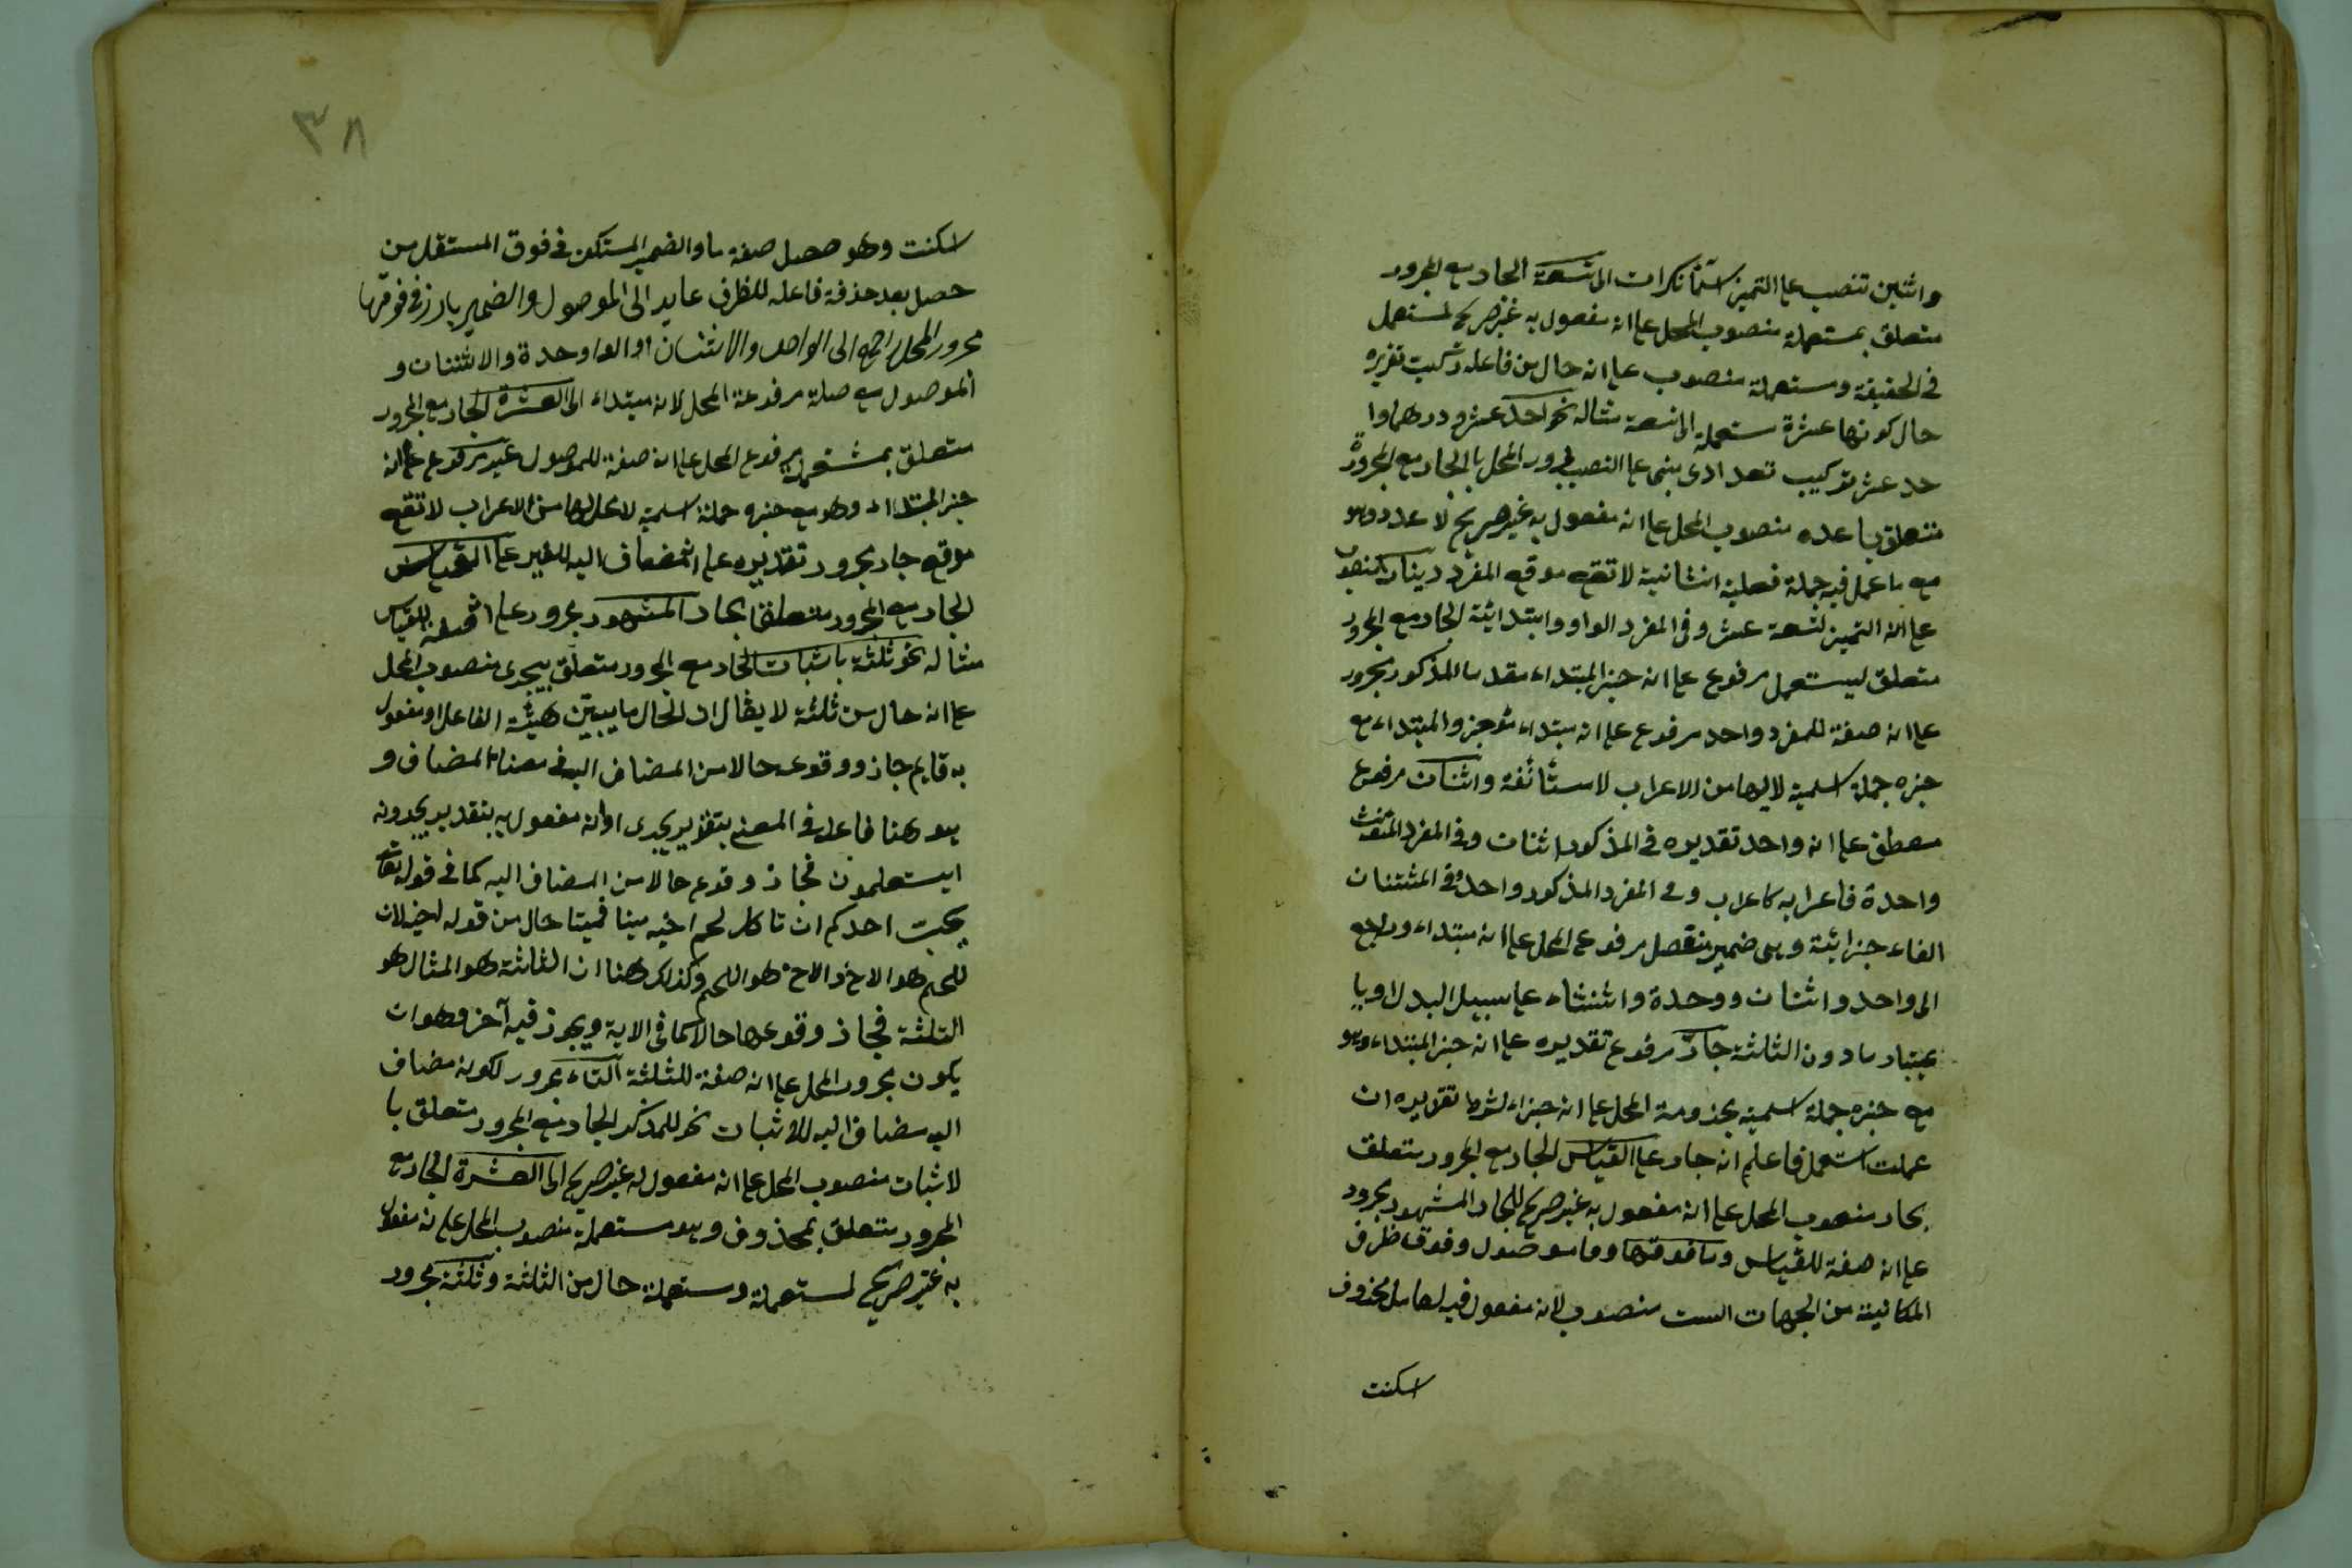 واثنين تنصب على التميز اسماء نكرات الى تسعة الجار مع المجرور
متعلق بمستعملة منصوب المحل على انه مفعول به غير صريح لمستعمل
في الحقيقة ومستعملة منصوب على انه حال من فاعله تركيب تقديره
حال كونها عشرة مستعملة الى تسعة مثاله نحو احد عشر درهما وا
حد عشر تركيب تعدادى مبنى على النصب مجرور المحل بالجار مع المجرور
متعلق باعده منصوب المحل على انه مفعول به غير صريح لاعدد وهو
مع ما عمل فيه جملة فعلية انشائية لا تقع موقع المفرد دينارا منصوب
على انه التميز لتسعة عشر وفى المفرد الواو وابتدائية الجار مع المجرور
متعلق ليستعمل مرفوع على انه خبر المبتداء مقدما المذكور مجرور
على انه صفة للمفرد واحد مرفوع على انه مبتداء مؤخر والمبتداء مع
خبره جملة اسمية لا لها من الاعراب لاستئنافة واثنان مرفوع
معطف على انه واحد تقديره فى المذكور اثنان وفى المفرد المؤنث
واحدة فاعرابه كاعراب وفى المفرد المذكور واحد وفى المثنتان
الفاء جزائية وهى ضمير منفصل مرفوع المحل على انه مبتداء وراجع
الى واحد واثنان ووحدة واثنتناء على سبيل البدل او با
عتبار ما دون الثلثة جار مرفوع تقديره على انه خبر المبتداء وهو
مع خبره جملة اسمية مجذومة المحل على انه جزاء لشرط تقديره ان
عملت استعمل فاعلم انه جار على القياس الجار مع المجرور متعلق
بجار منصوب المحل على انه مفعول به غير صريح للجار المشهور مجرور
على انه صفة للقياس وما فوقها وما موصول وفوق ظرف
المكانية من الجهات الست منصوب لانه مفعول فيه لعامل محذوف
اسكنت
٣٨
اسكنت وهو حصل صفة ما والضمير المستكن فى فوق المستقل من
حصل بعد حذفه فاعله للظرف عايد الى الموصول والضمير بارز فى فوقها
مجرور المحل راجع الى الواحد والاثنان او الواوحدة والاثنتان و
الموصول مع صلة مرفوعة المحل لانه مبتداء الى العشرة الجار مع المجرور
متعلق بمشتمل مرفوع المحل على انه صفة للموصول غير مرفوع على انه
خبر المبتداء وهو مع خبره جملة اسمية لا محل لها من الاعراب لا تقع
موقع جار مجرور تقديره على انه مضاف اليه للغير على القياس
الجار مع المجرور متعلقا بجار المشهور مجرور على انه صفة للقياس
مثاله نحو ثلثة باثبات الجار مع المجرور متعلق بيجرى منصوب المحل
على انه حال من ثلثة لا يقال ان الحال ما يبين هيئة الفاعل او مفعول
به قايم جاز ووقوعه حالا من المضاف اليه فى معناه المضاف و
هو هنا فاعل فى المعنى بتقدير يجرى او انه مفعول به بتقدير يجرونه
ايستعلمون فجاز وقوع حالا من المضاف اليه كما فى قوله تعالى
يحبت احدكم ان تاكل لحم اخيه ميتا فميتا حال من قوله اخيه لان
للحم هو الاخ والاخ هو اللحم وكذلك هنا ان الثلثة هو المثال هو
الثلثة فجاز وقوعها حالا كما فى الاية ويجوز فيه آخر وهو ان
يكون مجرور المحل على انه صفة للثلثة التاء مجرور لكونه مضاف
اليه مضاف اليه للاثبات نحو للمذكر الجار مع المجرور متعلق با
لاثبات منصوب المحل على انه مفعول له غير صريح الى العشرة الجار مع
المجرور متعلق بمحذوف وهو مستعملة منصوب المحل على انه مفعول
به غير صريح لمستعملة ومستعملة حال من الثلثة وثلثة مجرور